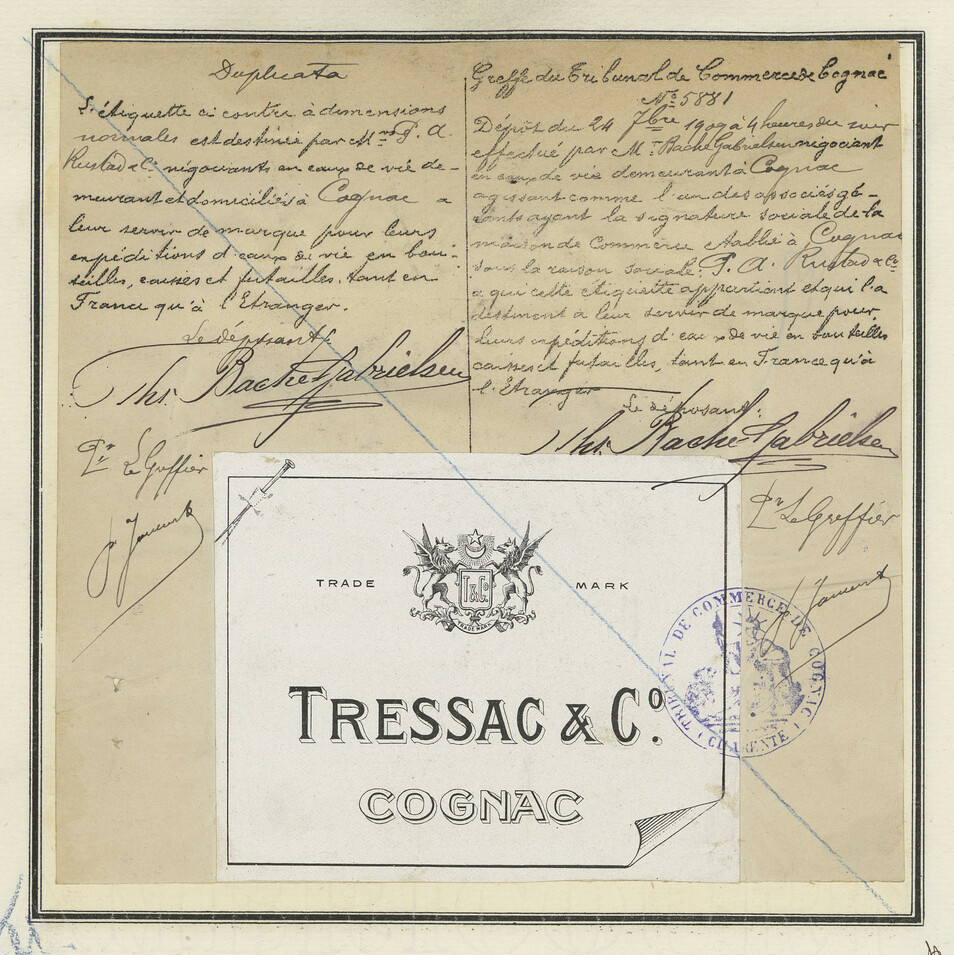 Duplicata
L'étiquette ci contre à dimensions
normales est destinée par Mrs P. A.
Rustad & Co négociants en eaux de vie de-
meurant et domiciliés à Cognac a
leur servir de marque pour leurs
expéditions d'eaux de vie en bou-
teilles, caisses et futailles, tant en
France qu'à l'Etranger.
Le déposant
Ths. Bache-Gabrielsen
Pr Le Greffier
Greffe du Tribunal de Commerce de Cognac
No 5881
Dépôt du 24 7bre 1909 à 4 heures du soir
effectué par Mr Bache Gabrielsen négociant
en eaux de vie demeurant à Cognac
agissant comme l'un des associés gé-
rants ayant la signature sociale de la
maison de Commerce établie à Cognac
sous la raison sociale: P. A. Rustad & Co
a qui cette étiquette appartient et qui l'a
destinent à leur servir de marque pour
leurs expéditions d'eaux de vie en bouteilles
caisses et futailles, tant en France qu'à
l'Etranger
Le déposant.
Ths. Bache-Gabrielsen
Pr Le Greffier
TRADE MARK
T&Co
TRADE MARK
TRESSAC & Co.
COGNAC
TRIBUNAL DE COMMERCE DE COGNAC
(CHARENTE)